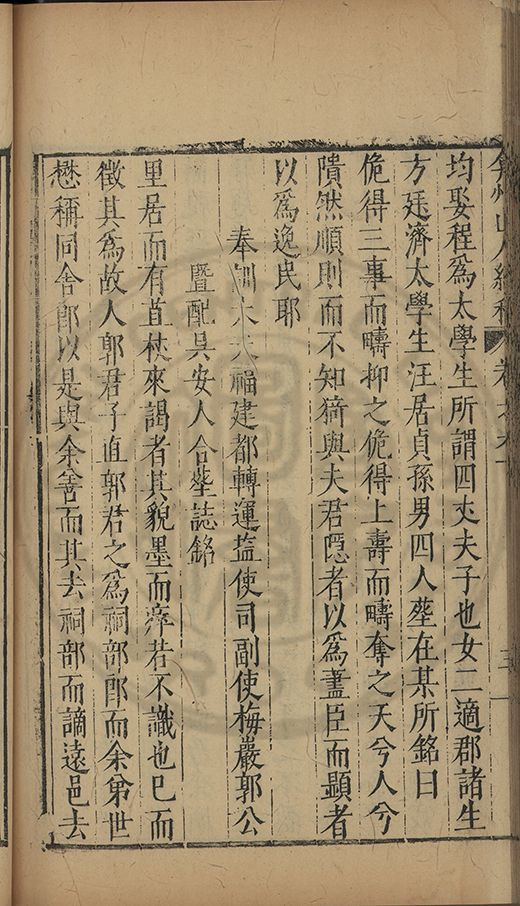 弇州山人續稿 卷之九十
均娶程為太學生所謂四丈夫子也女二適郡諸生
方廷濟太學生汪居貞孫男四人塟在某所銘曰
佹得三事而疇抑之佹得上壽而疇奪之天兮人兮
隤然順則而不知猗與夫君隱者以為藎臣而顯者
以為逸民耶
奉訓大夫福建都轉運盐使司副使梅巖郭公
暨配吳安人合塟誌銘
里居而有苴杖來謁者其貌墨而瘁若不識也巳而
徵其為故人郭君子直郭君之為祠部郎而余弟世
懋稱同舍郎以是與余善而其去祠部而謫遠邑去